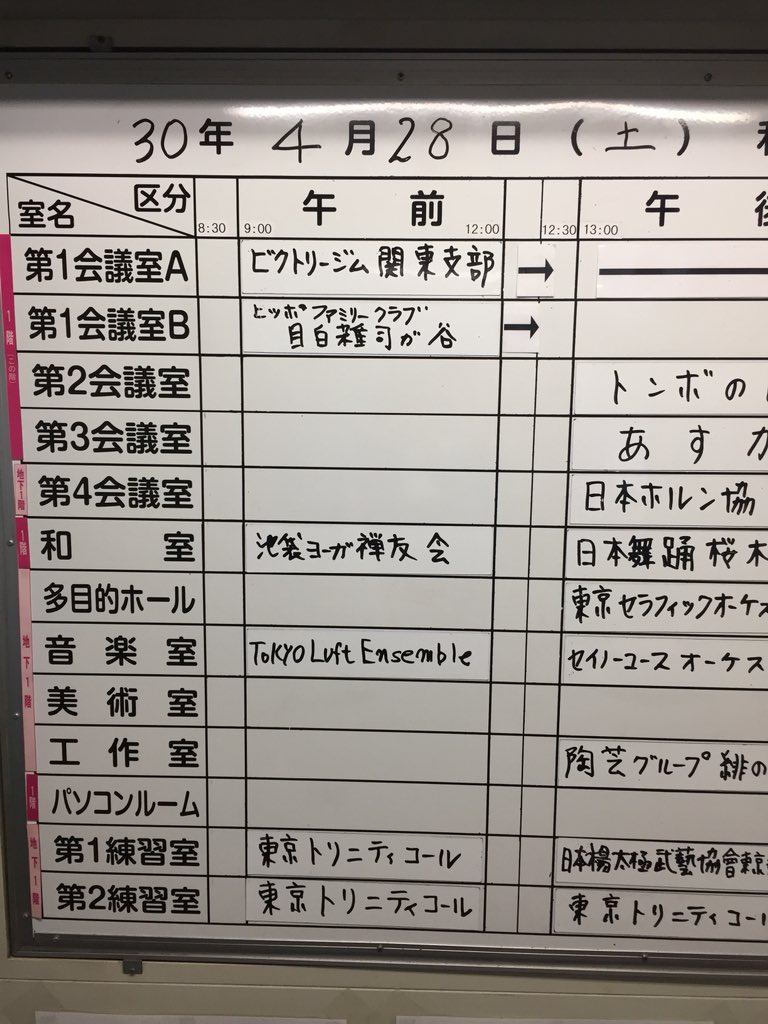 30年 4月28日(土)
室名 区分 午前 午
8:30 9:00 12:00 12:30 13:00
1階(この階)
第1会議室A ビクトリージム関東支部 →
第1会議室B ヒッポファミリークラブ
目白雑司が谷 →
第2会議室 トンボの
第3会議室 あすか
地下1階
第4会議室 日本ホルン協
1階
和室 池袋ヨーガ禅友会 日本舞踊桜木
地下1階
多目的ホール 東京セラフィックオーケス
音楽室 TOKYO Luft Ensemble セイノーユースオーケス
美術室
工作室 陶芸グループ緋の
1階
パソコンルーム
地下1階
第1練習室 東京トリニティコール 日本楊太極武藝協會東京
第2練習室 東京トリニティコール 東京トリニティコール